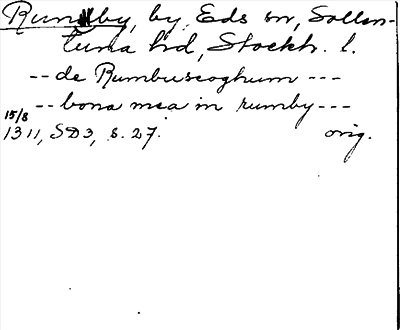 Runby, by, Eds sn, Sollen-
tuna hd, Stockh. l.
-- de Rumbuscoghum ---
-- bona mea in rumby ---
15/8
1311, SD3, s. 27. orig.